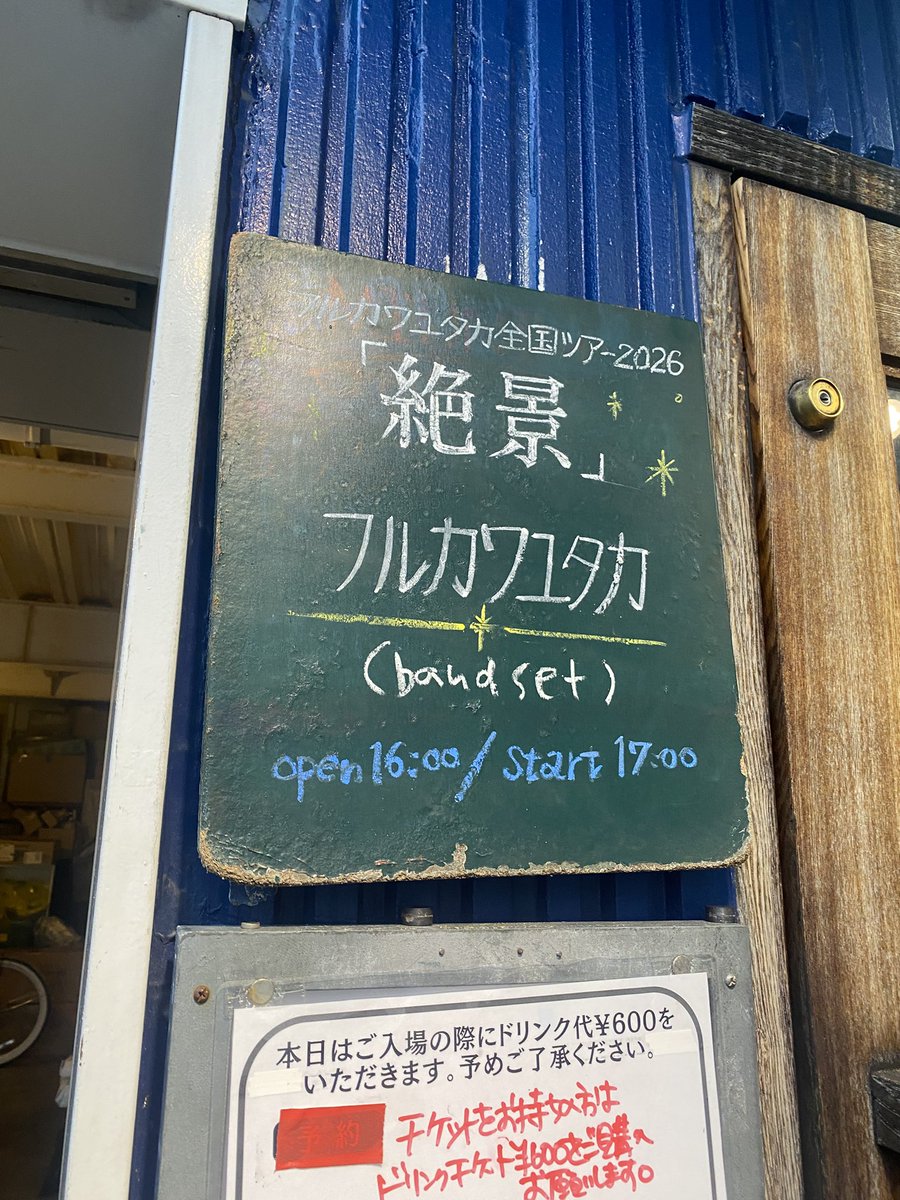 フルカワユタカ全国ツアー2026
「絶景」
フルカワユタカ
(bandset)
open16:00/start17:00
本日はご入場の際にドリンク代¥600を
いただきます。予めご了承ください。
予約
チケットをお持ちの方は
ドリンクチケット¥600をご購入
お願いします。